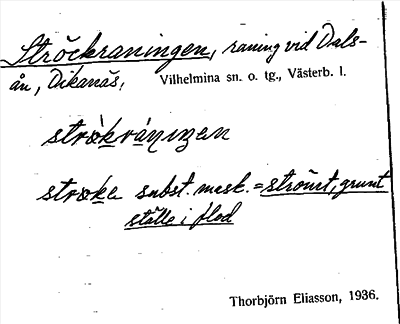 Ströckraningen, raning vid Dals-
ån, Dikanäs, Vilhelmina sn. o. tg., Västerb. l.
strøkrániŋen
strøka subst. mask. = strömt, grunt
ställe i flod
Thorbjörn Eliasson, 1936.